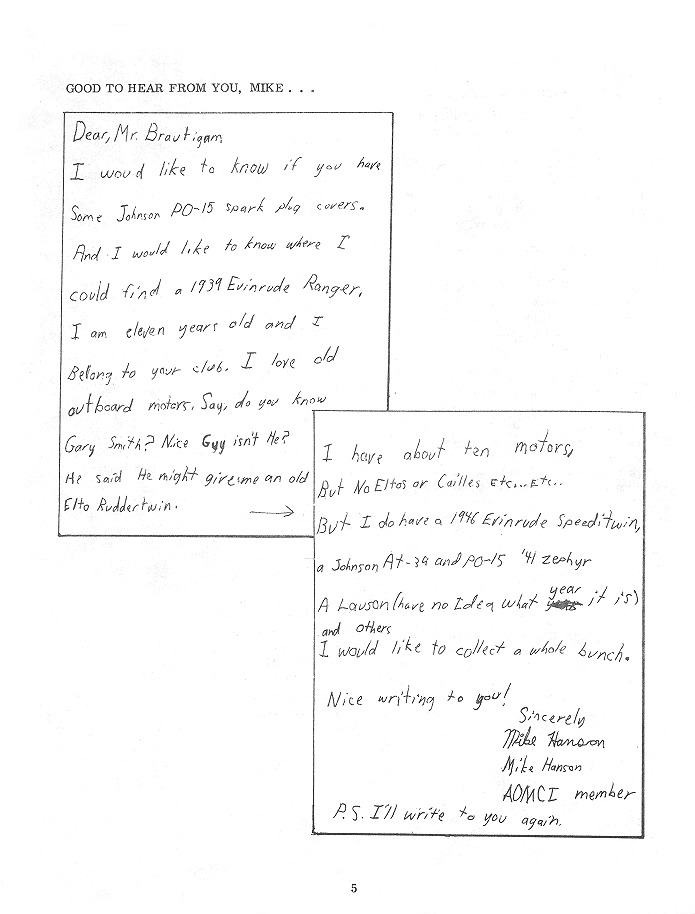 GOOD TO HEAR FROM YOU, MIKE . . .
Dear, Mr. Brautigam,
I woud like to know if you have
Some Johnson PO-15 spark plug covers.
And I would like to know where I
could find a 1939 Evinrude Ranger,
I am eleven years old and I
Belong to your club. I love old
outboard motors. Say, do you know
Gary Smith? Nice Guy isn't He?
He said He might give me an old
Elto Ruddertwin. →
I have about ten motors,
But No Eltos or Cailles Etc...Etc..
But I do have a 1946 Evinrude Speeditwin,
a Johnson At-39 and PO-15 '41 zephyr
A Lauson (have no Idea what year it is)
and others
I would like to collect a whole bunch.
Nice writing to you!
Sincerely
Mike Hanson
Mike Hanson
AOMCI member
P.S. I'll write to you again.
5